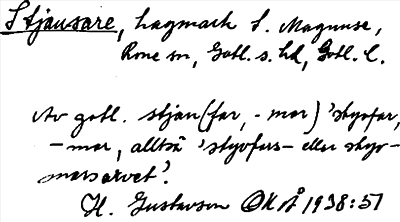 Stjausare, hagmark S. Magnuse,
Rone sn, Gotl. s. hd, Gotl. l.
Av gotl. stjau(far, -mor) 'styvfar,
-mor, alltså 'styvfars- eller styv-
morsarvet'.
H. Gustavson OKÅ 1938:51